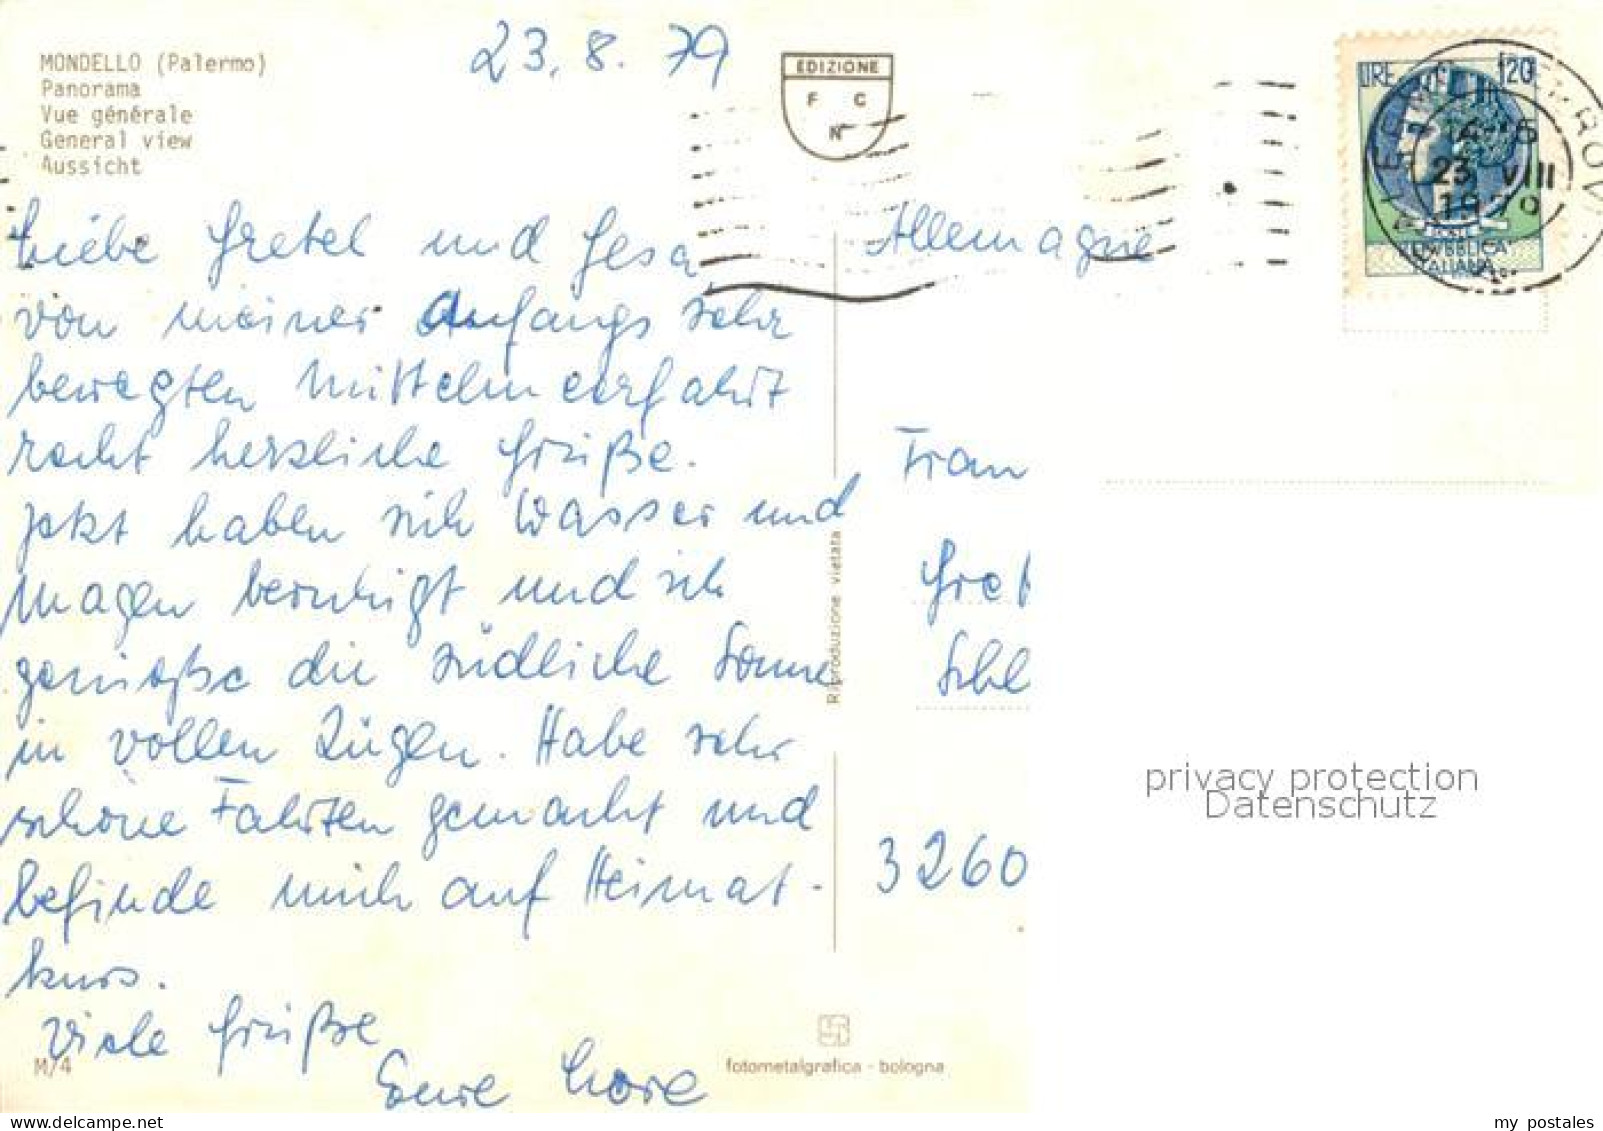 MONDELLO (Palermo)
Panorama
Vue générale
General view
Aussicht
23. 8. 79
EDIZIONE
F G
N
LIRE 120
23 VIII
1979
REPUBBLICA
ITALIANA
Liebe Gretel und Gesa
von meiner Anfangs sehr
bewegten Mittelmeerfahrt
recht herzliche Grüße.
Jetzt haben sich Wasser und
Magen beruhigt und ich
genieße die südliche Sonne
in vollen Zügen. Habe sehr
schöne Fahrten gemacht und
befinde mich auf Heimat-
kurs.
Viele Grüße
Eure Lore
Allemagne
Frau
Gret
Schl
3260
Riproduzione vietata
privacy protection
Datenschutz
M/4
fotometalgrafica - bologna
my postales